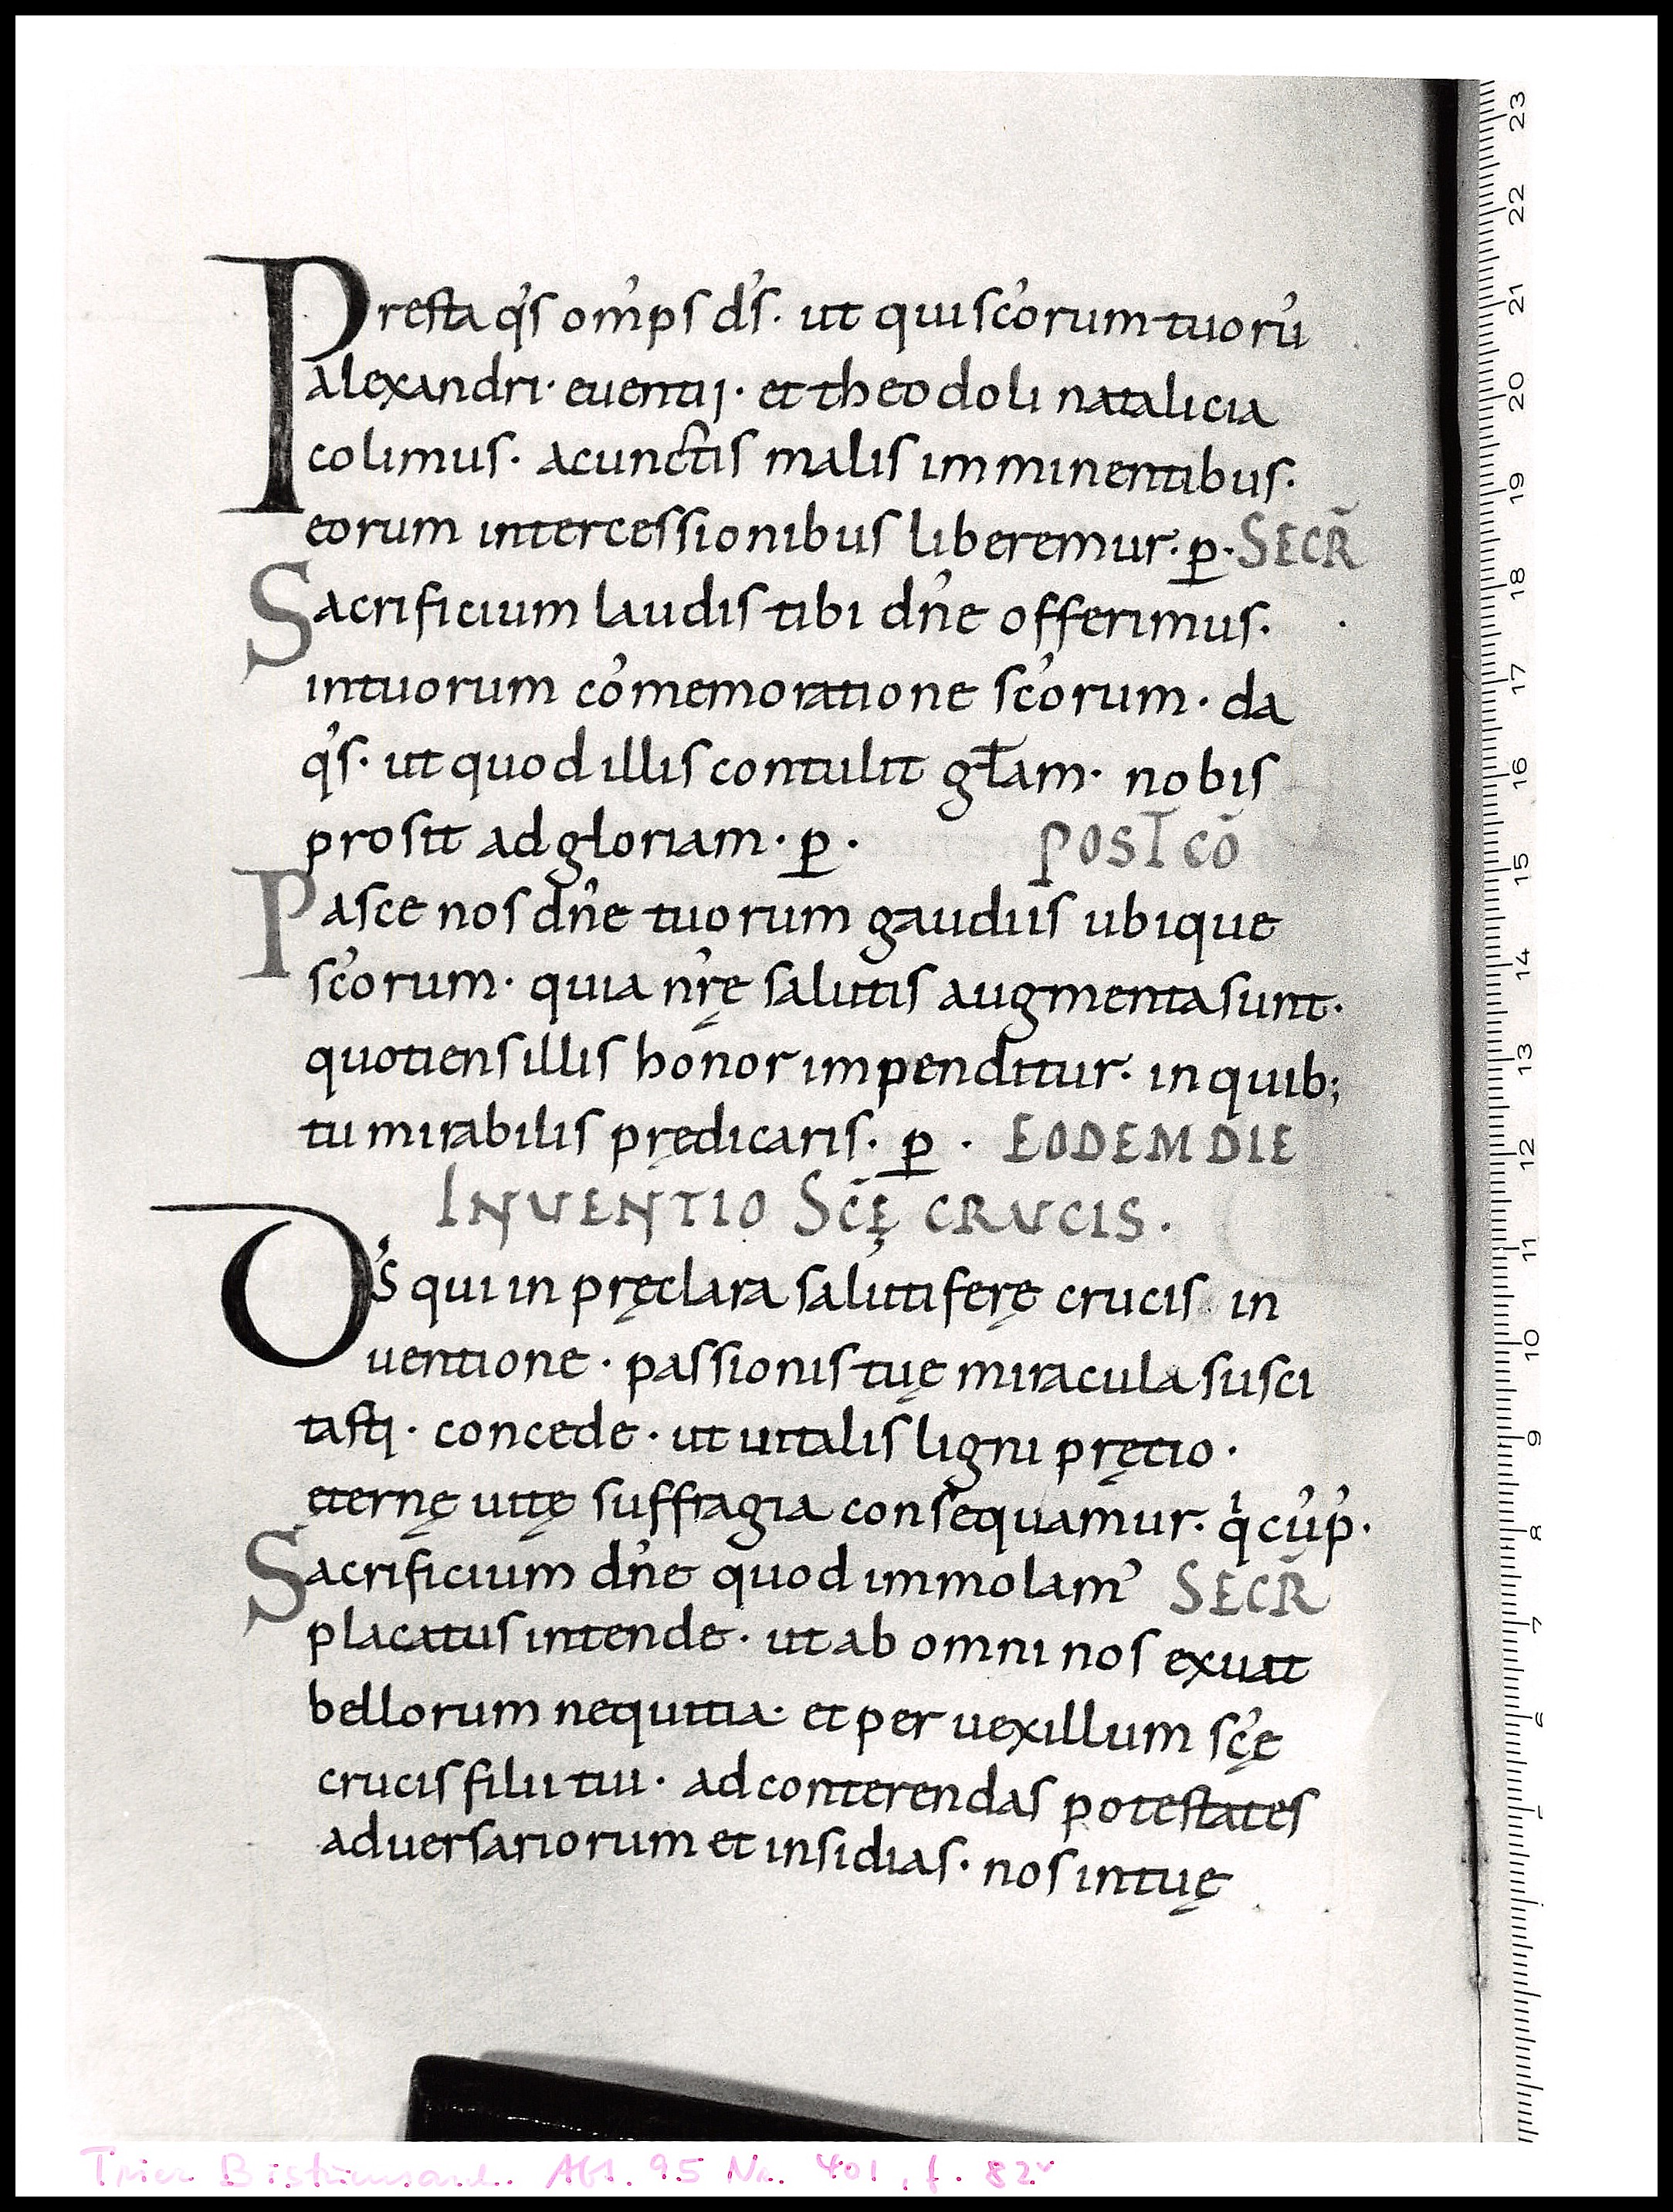 Presta q̉s om̉ps d̉s· ut qui sc̉orum tuorū
alexandri· euentij· et theodoli natalicia
colimus· acunctis malis imminentibus·
eorum intercessionibus liberemur· p̱· SECR̄
Sacrificium laudis tibi dn̉e offerimus·
intuorum co̓memoratione sc̉orum· da
q̉s· ut quod illis contulit gl̄am· nobis
prosit ad gloriam· p̱· POST CŌ
Pasce nos dn̉e tuorum gaudiis ubique
sc̉orum· quia nr̉ę salutis augmenta sunt·
quotiens illis honor impenditur· in quib;
tu mirabilis prędicaris· p̱· EODEM DIE
INUENTIO SC̄Ę CRUCIS·
D̉S qui in pręclara salutiferę crucis in
uentione· passionis tuę miracula susci
tasti· concede· ut uitalis ligni prętio·
ęternę uitę suffragia consequamur· qͥ cu̓ p̓·
Sacrificium dn̉e quod immolam᾿ SECR̄
placatus intende· ut ab omni nos exuat
bellorum nequitia· et per uexillum sc̉ę
crucis filii tui· ad conterendas potestates
aduersariorum et insidias· nos in tuę
23
22
21
20
19
18
17
16
15
14
13
12
11
10
9
8
7
6
5
Trier Bistumsarch. Abt. 95 Nr. 401, f. 82v